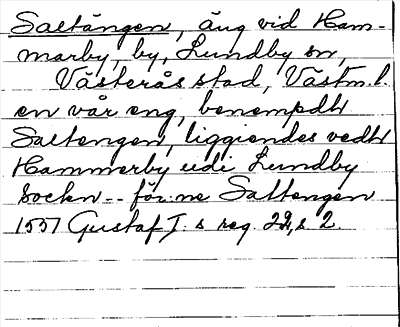 Saltängen, äng vid Ham-
marby, by, Lundby sn,
Västerås stad, Västm. l.
en vår eng, benempdt
Saltengen, liggiendes vedt
Hammerby udi Lundby
Sockn -- för:ne Saltengen
1557 Gustaf I:s reg. 22, s 2.